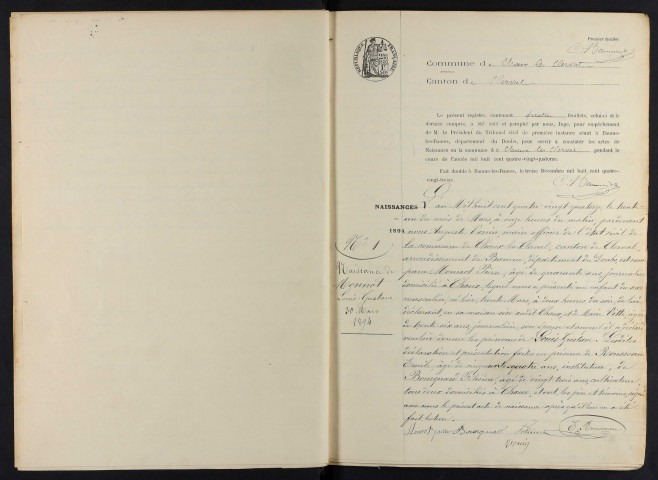 Premier feuillet.
RÉPUBLIQUE FRANÇAISE
Commune de Chaux les Clerval
Canton de Clerval
Le présent registre, contenant quatre feuillets, celui-ci et le
dernier compris, a été coté et paraphé par nous, Juge, pour empêchement
de M. le Président du Tribunal civil de première instance séant à Baume-
les-Dames, département du Doubs, pour servir à constater les actes de
Naissances en la commune de Chaux les Clerval pendant le
cours de l'année mil huit cent quatre-vingt-quatorze.
Fait double à Baume-les-Dames, le treize Décembre mil huit cent quatre-
vingt-treize.
NAISSANCES
1894
N° 1
Naissance de
Monnot
Louis Gustave
30 Mars
1894
L'an Mil huit cent quatre vingt quatorze le trente
un du mois de Mars, à onze heures du matin, pardevant
nous Auguste, maire officier de l'état civil de
la commune de Chaux les Clerval, canton de Clerval,
arrondissement de Baume, département du Doubs, est com
paru Monnot, âgé de quarante ans, journalier
domicilié à Chaux, lequel nous a présenté un enfant du sexe
masculin, né hier, trente Mars, à deux heures du soir, de lui
déclarant, en sa maison sise audit Chaux, et de Marie, âgée
de trente six ans, journalière, son épouse et auquel il a déclaré
vouloir donner les prénoms de Louis Gustave. Lesdites
déclaration et présentation faites en présence de Rousseau
Emile, âgé de ans, instituteur, de
Bourgnad, âgé de vingt trois ans, cultivateur,
tous deux domiciliés à Chaux, et ont, les père et témoins, signé
avec nous le présent acte de naissance après qu'il leur en a été
fait lecture.
Monnot Bourgnad